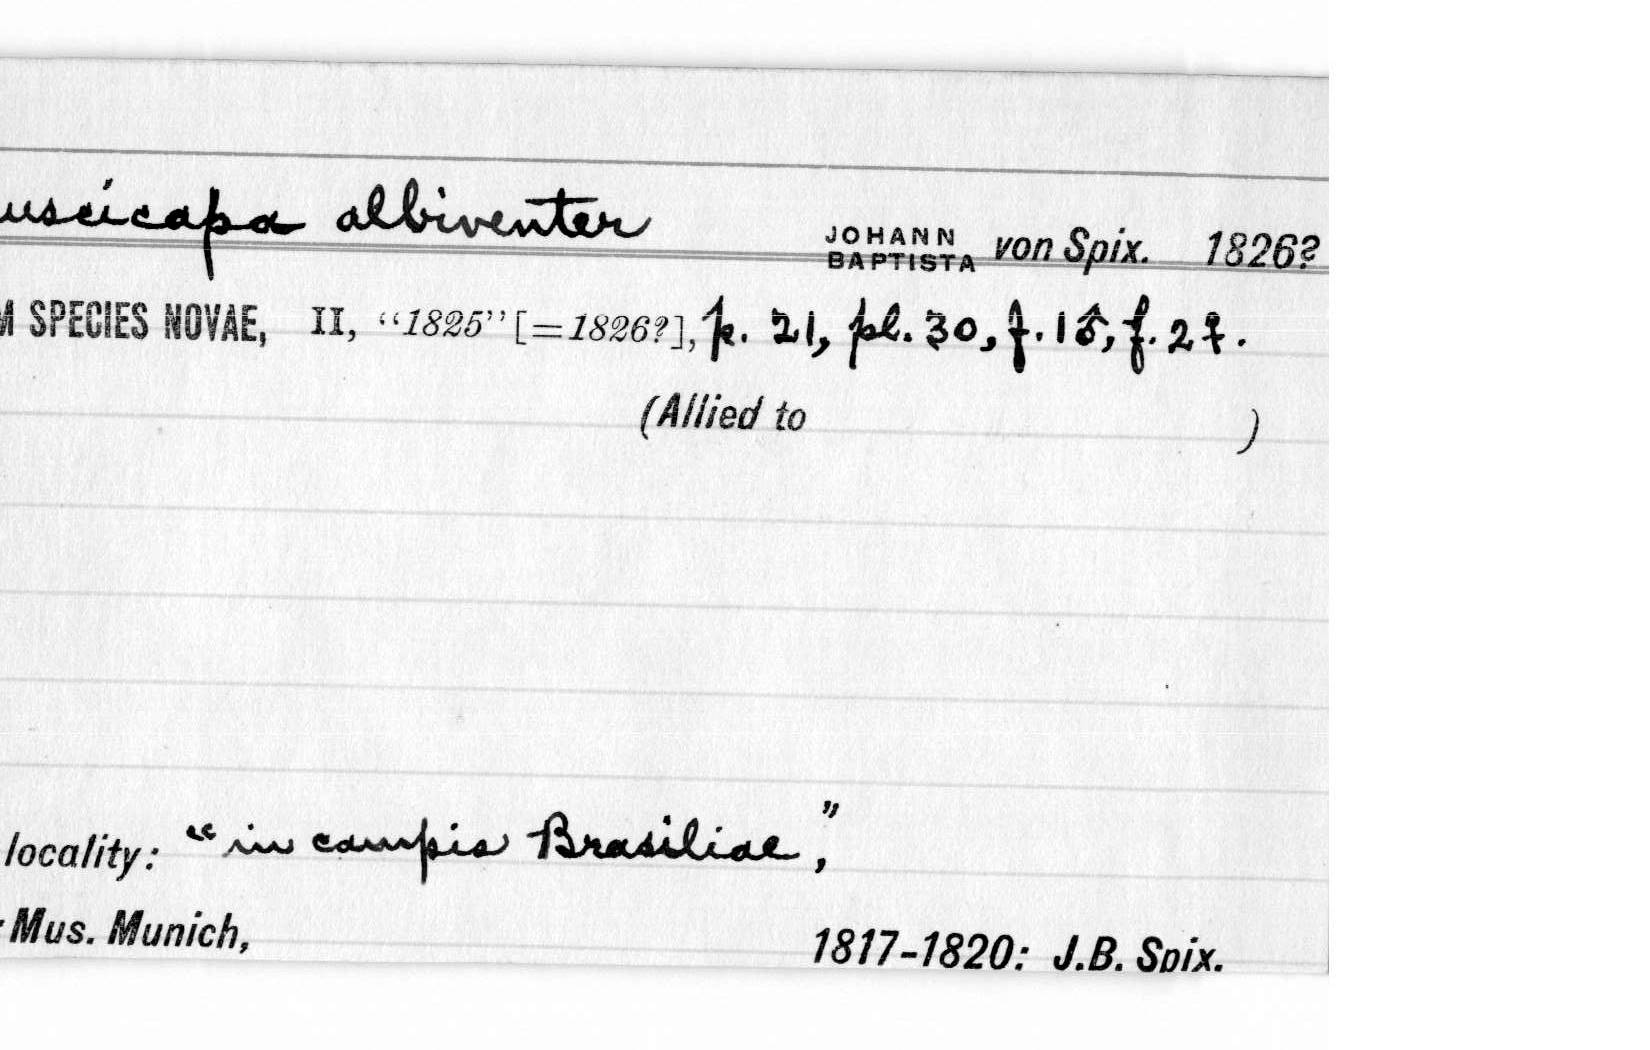 uscicapa albiventer JOHANN BAPTISTA von Spix. 1826?
M SPECIES NOVAE, II, “1825” [=1826?], p. 21, pl. 30, f. 1♂, f. 2♀.
(Allied to )
locality: “in campis Brasiliae,”
Mus. Munich, 1817-1820: J.B. Spix.